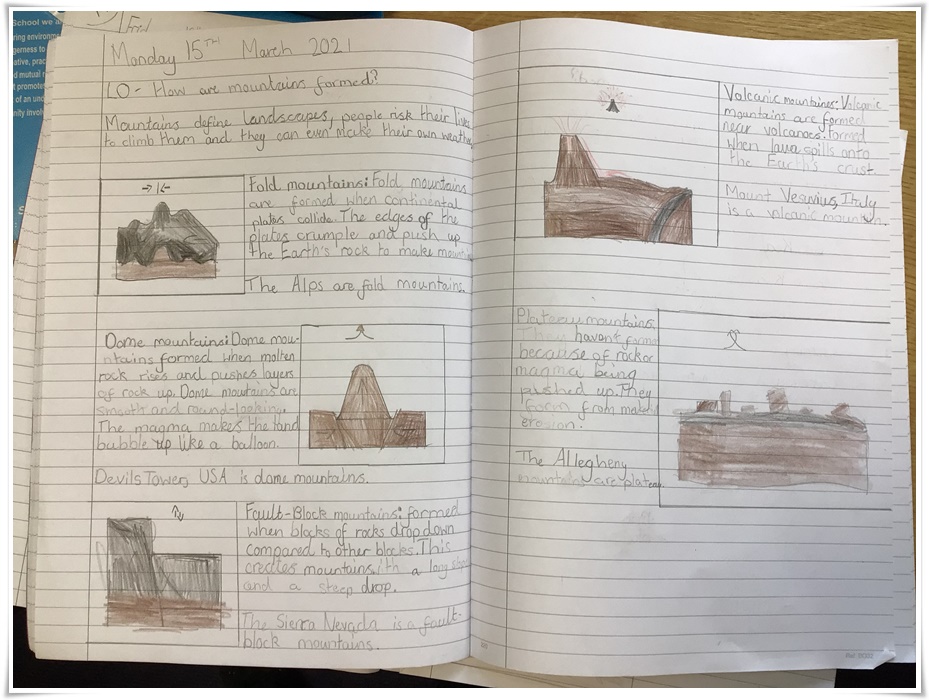 School we a
ring environme
gerness to
ative, prac
d mutual r
t promote
of an und
nity involv
Monday 15TH March 2021
LO - How are mountains formed?
Mountains define landscapes, people risk their lives
to climb them and they can even make their own weather
Fold mountains: Fold mountains
are formed when continental
plates collide. The edges of the
plates crumple and push up
the Earth's rock to make mount
The Alps are fold mountains.
Dome mountains: Dome mou-
ntains formed when molten
rock rises and pushes layers
of rock up. Dome moutains are
smooth and round-looking.
The magma makes the land
bubble up like a balloon.
Devils Tower, USA is dome mountains.
Fault-Block mountains: formed
when blocks of rocks drop down
compared to other blocks. This
creates mountains ith a long slop
and a steep drop.
The Sierra Nevada is a fault-
block mountains.
Volcanic mountaines: Volcanic
mountains are formed
near volcanoes. Formed
when lava spills onto
the Earth's crust
Mount Vesuvius, Italy
is a volcanic mountain.
Plateau mountains.
They havent form
because of rock or
magma being
pushed up. They
form from
erosion.
The Allegheny
mountains are plateau.